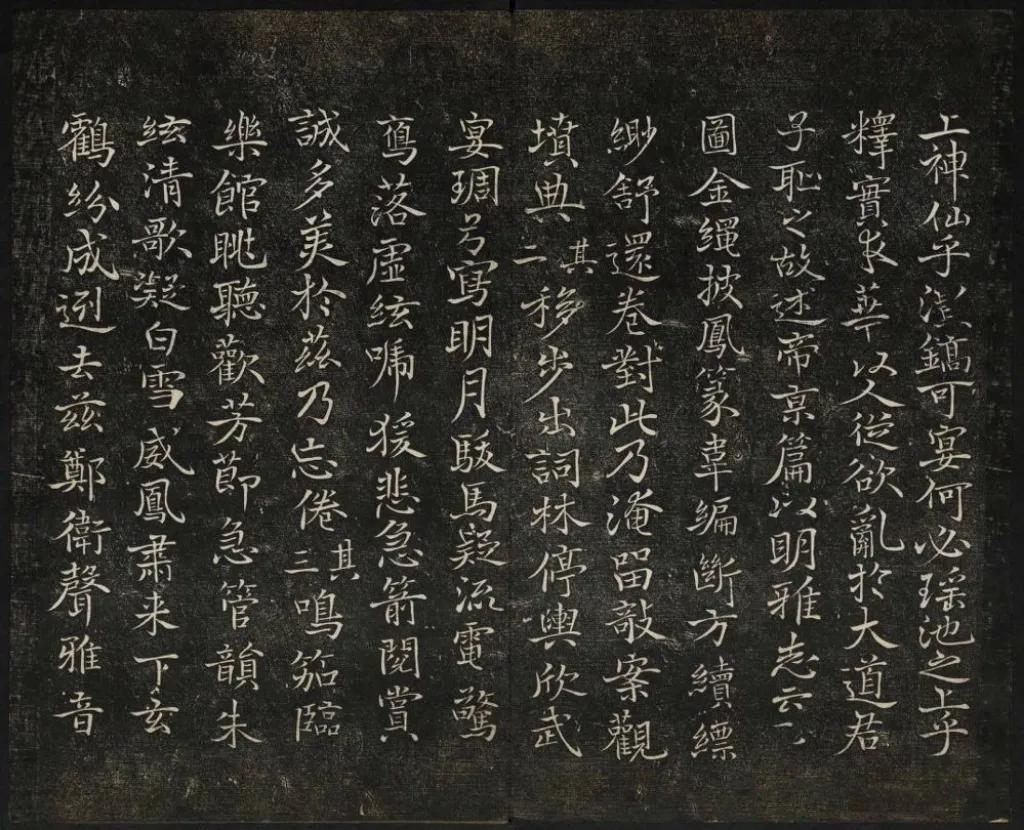 上神仙乎鎬可宴何必瑤池之上乎
釋實求華以人從欲亂於大道君
子恥之故述帝亰篇以明雅志云尒
圖金繩披鳳篆韋編斷方續縹
緲舒還卷對此乃淹留敧案觀
墳典其二移步出詞林停輿欣武
宴琱弓寫明月駿馬疑流電驚
鴈落虛絃嘯猨悲急箭閱賞
誠多美於茲乃忘倦其三鳴笳臨
樂館眺聽歡芳節急管韻朱
絃清歌凝白雪威鳳肅来下玄
鶴紛成迾去茲鄭衛聲雅音